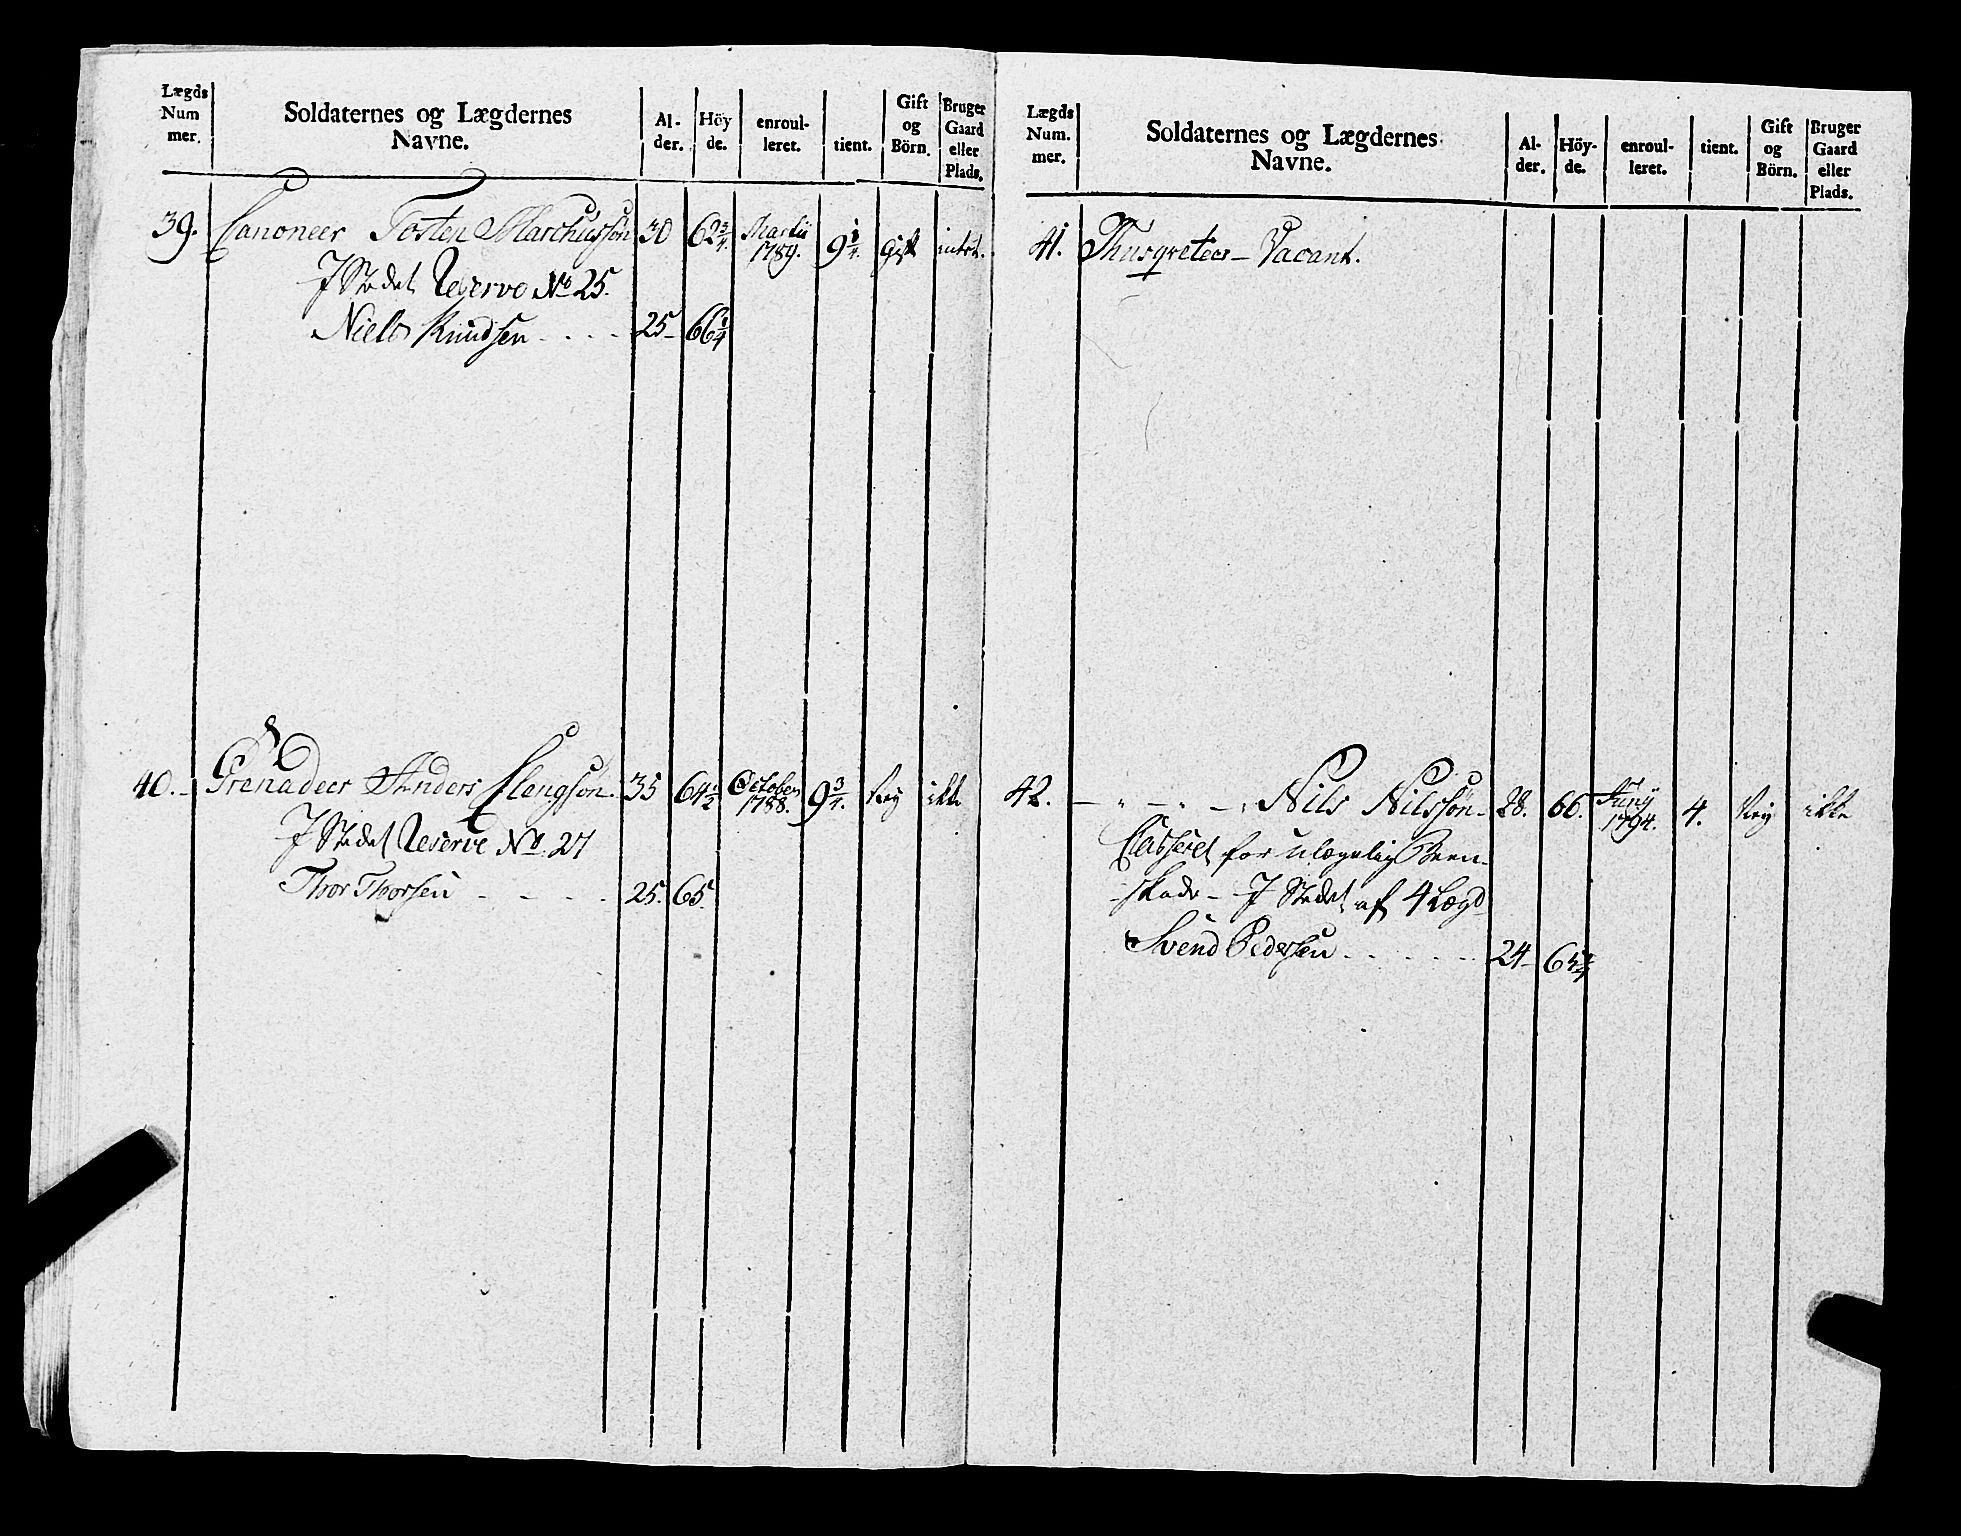 Lægds Num mer. Soldaternes og Lægdernes Navne. Al- der. Höy de. enroul- leret. tient. Gift og Börn. Bruger Gaard eller Plads.
39. Canoneer Tosten Marchusön 30 62 3/4. Martii 1789. 9 1/4. Gift intet.
I Stedet Reserve No 25.
Niels Knudsen - - - - 25- 66 1/4
40.- Grenadeer Anders Elengsön. 35 64 1/2 October 1788. 9 3/4. Ney ikke
I Stedet Reserve No. 27
Thor Thorsen - - - - 25. 65.
Lægds Num. mer. Soldaternes og Lægdernes Navne. Al- der. Höy- de. enroul- leret. tient. Gift og Börn. Bruger Gaard eller Plads.
41. Musqveteer - Vacant.
42. - " - " - " Nils Nilssön- 28. 66. Junij 1794. 4. Ney ikke
Casseret for ulægelig Been-
skade - I Stedet af 4 Lægd
Svend Pedersen - - - - - 24- 65 3/4